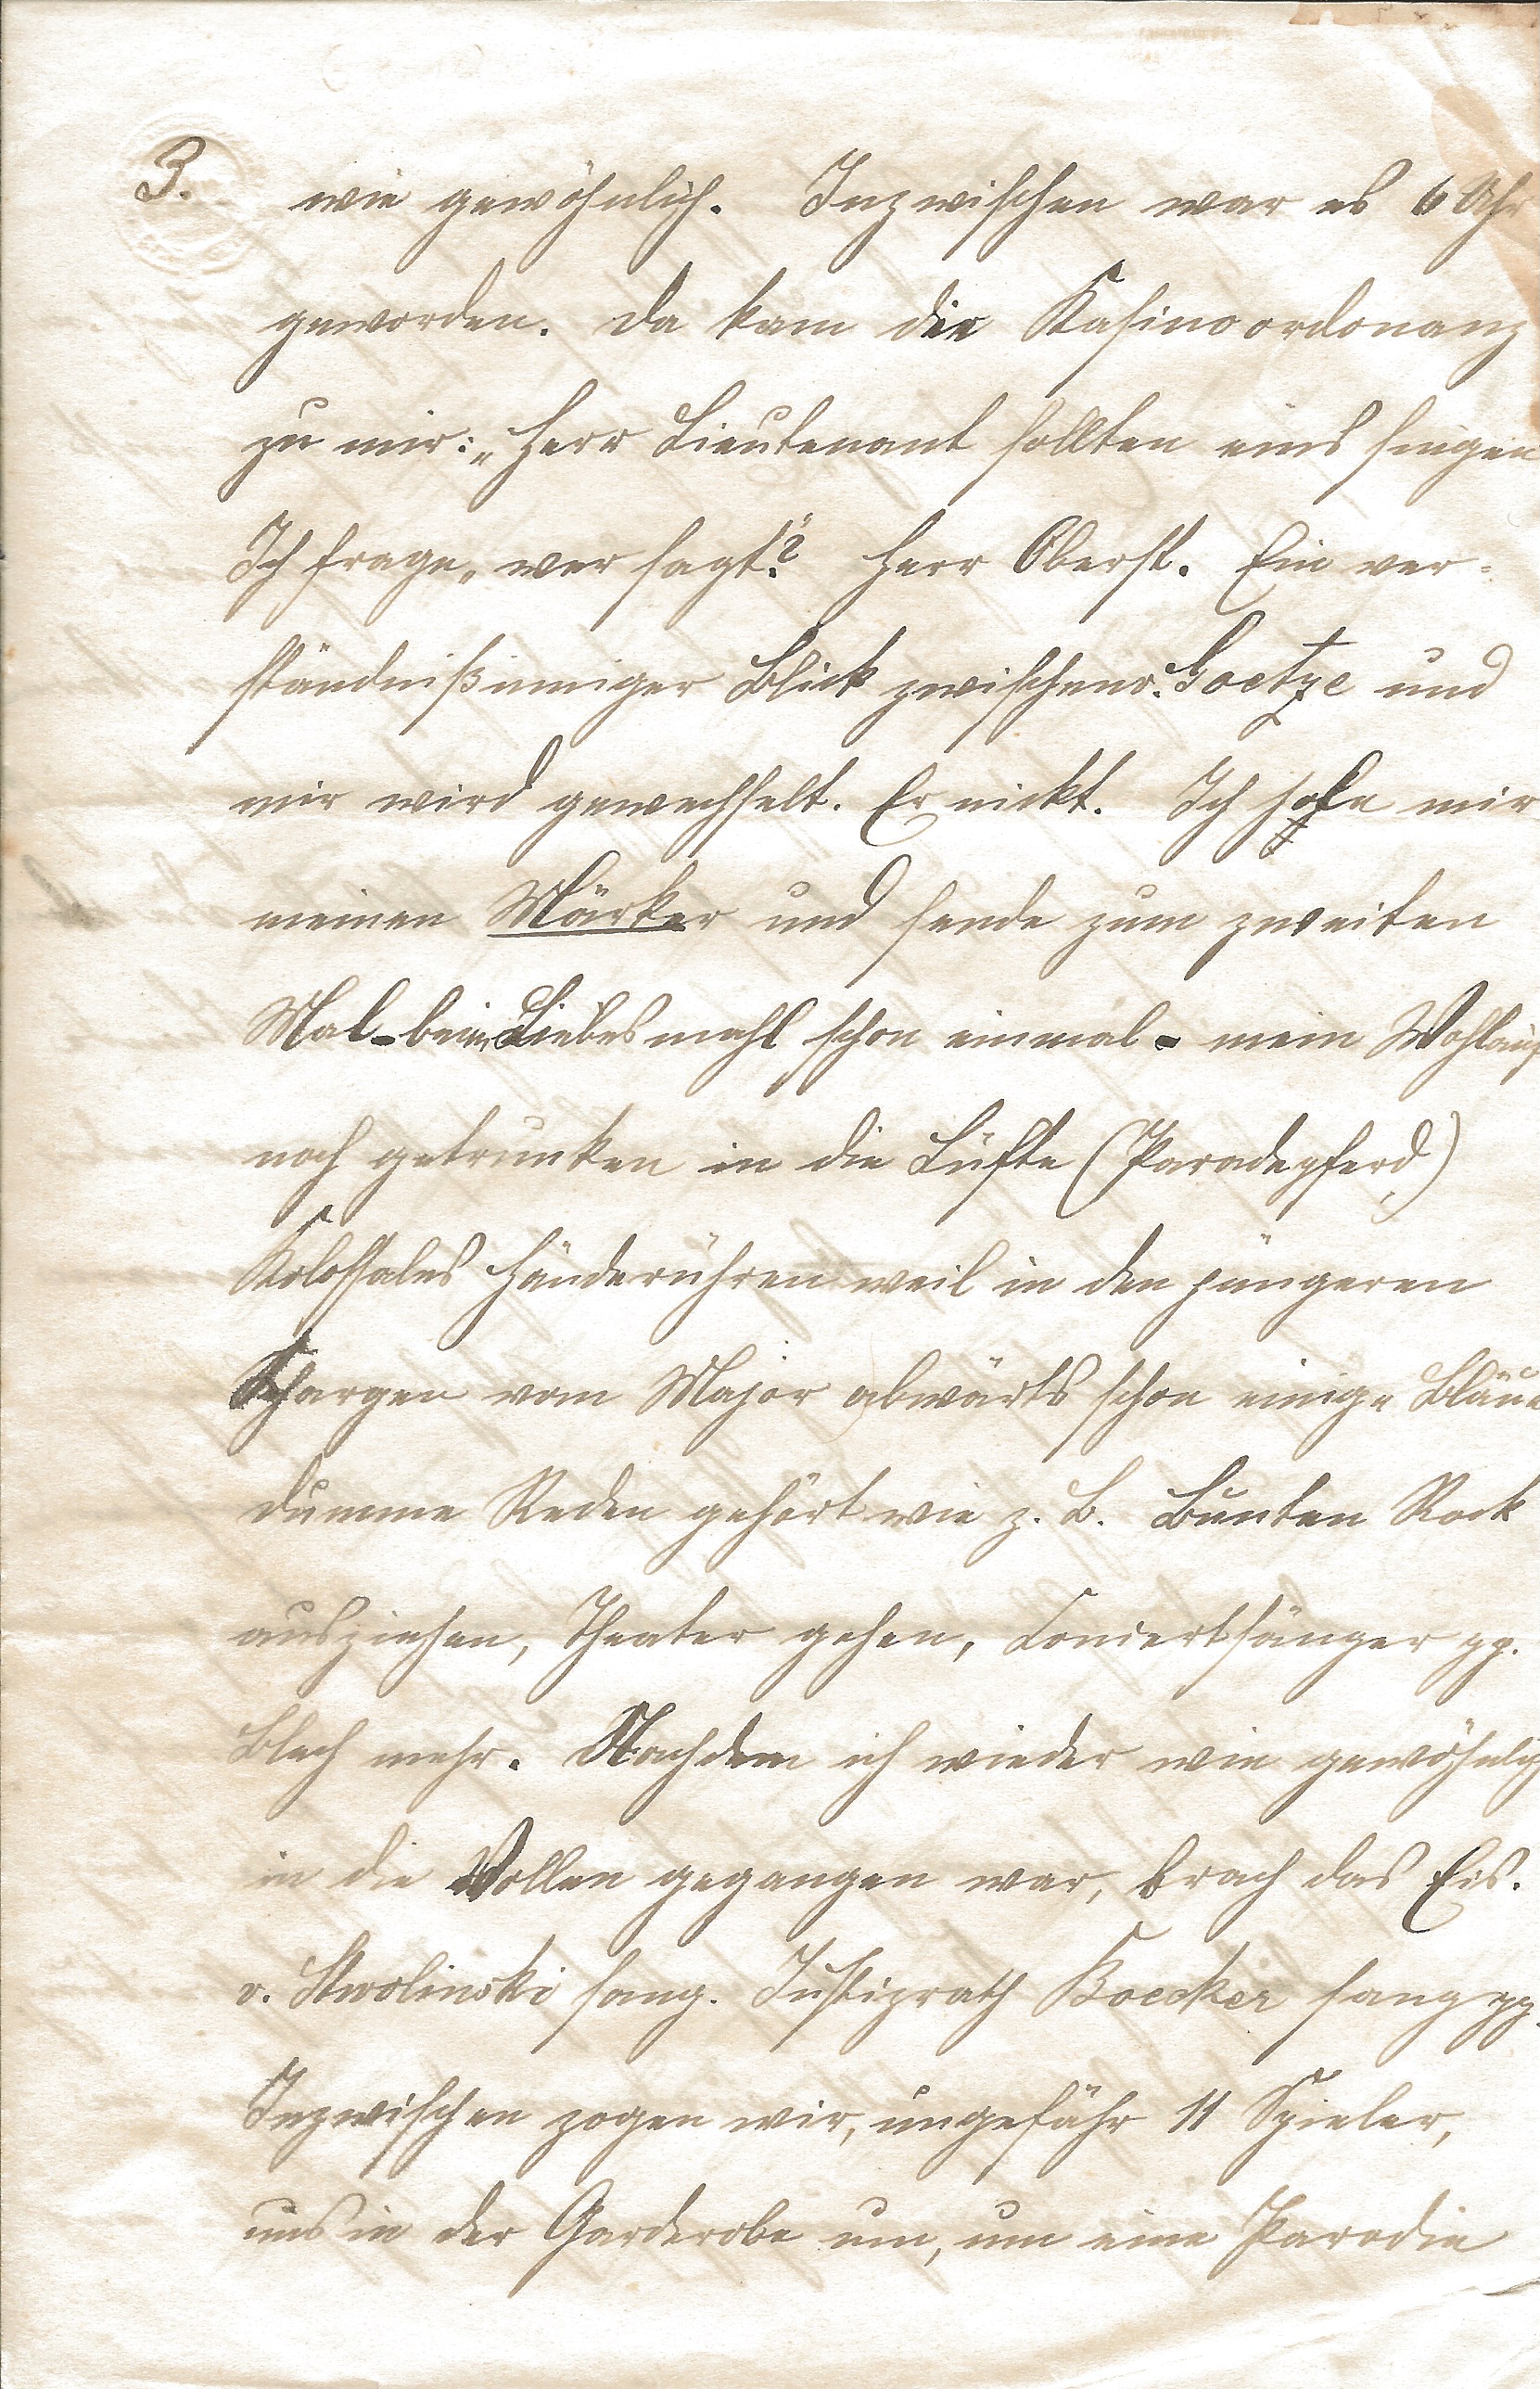 3.
wie gewöhnlich. Inzwischen war es 6 Uhr
geworden. Da kam die Kasinoordonanz
zu mir: „Herr Lieutenant sollten eins singen
Ich frage „wer sagt?" Herr Oberst. Ein ver-
ständnißinniger Blick zwischen v. Goetze und
mir wird gewechselt. Er nickt. Ich hole mir
meinen Märker und sende zum zweiten
Mal - beim Liebesmahl schon einmal - mein Wohlauf
noch getrunken in die Lüfte (Paradepferd)
Kolossales Händerühren weil in den jüngeren
Chargen vom Major abwärts schon einige
dumme Reden gehört wie z. B. Bunten Rock
ausziehen, Theater gehen, Concertsänger pp.
Blech mehr. Nachdem ich wieder wie gewöhnlich
in die Vollen gegangen war, brach das Eis.
v. Stwolinski sang. Justizrath Boecker sang pp.
Inzwischen zogen wir, ungefähr 11 Spieler,
uns in der Garderobe um, um eine Parodie